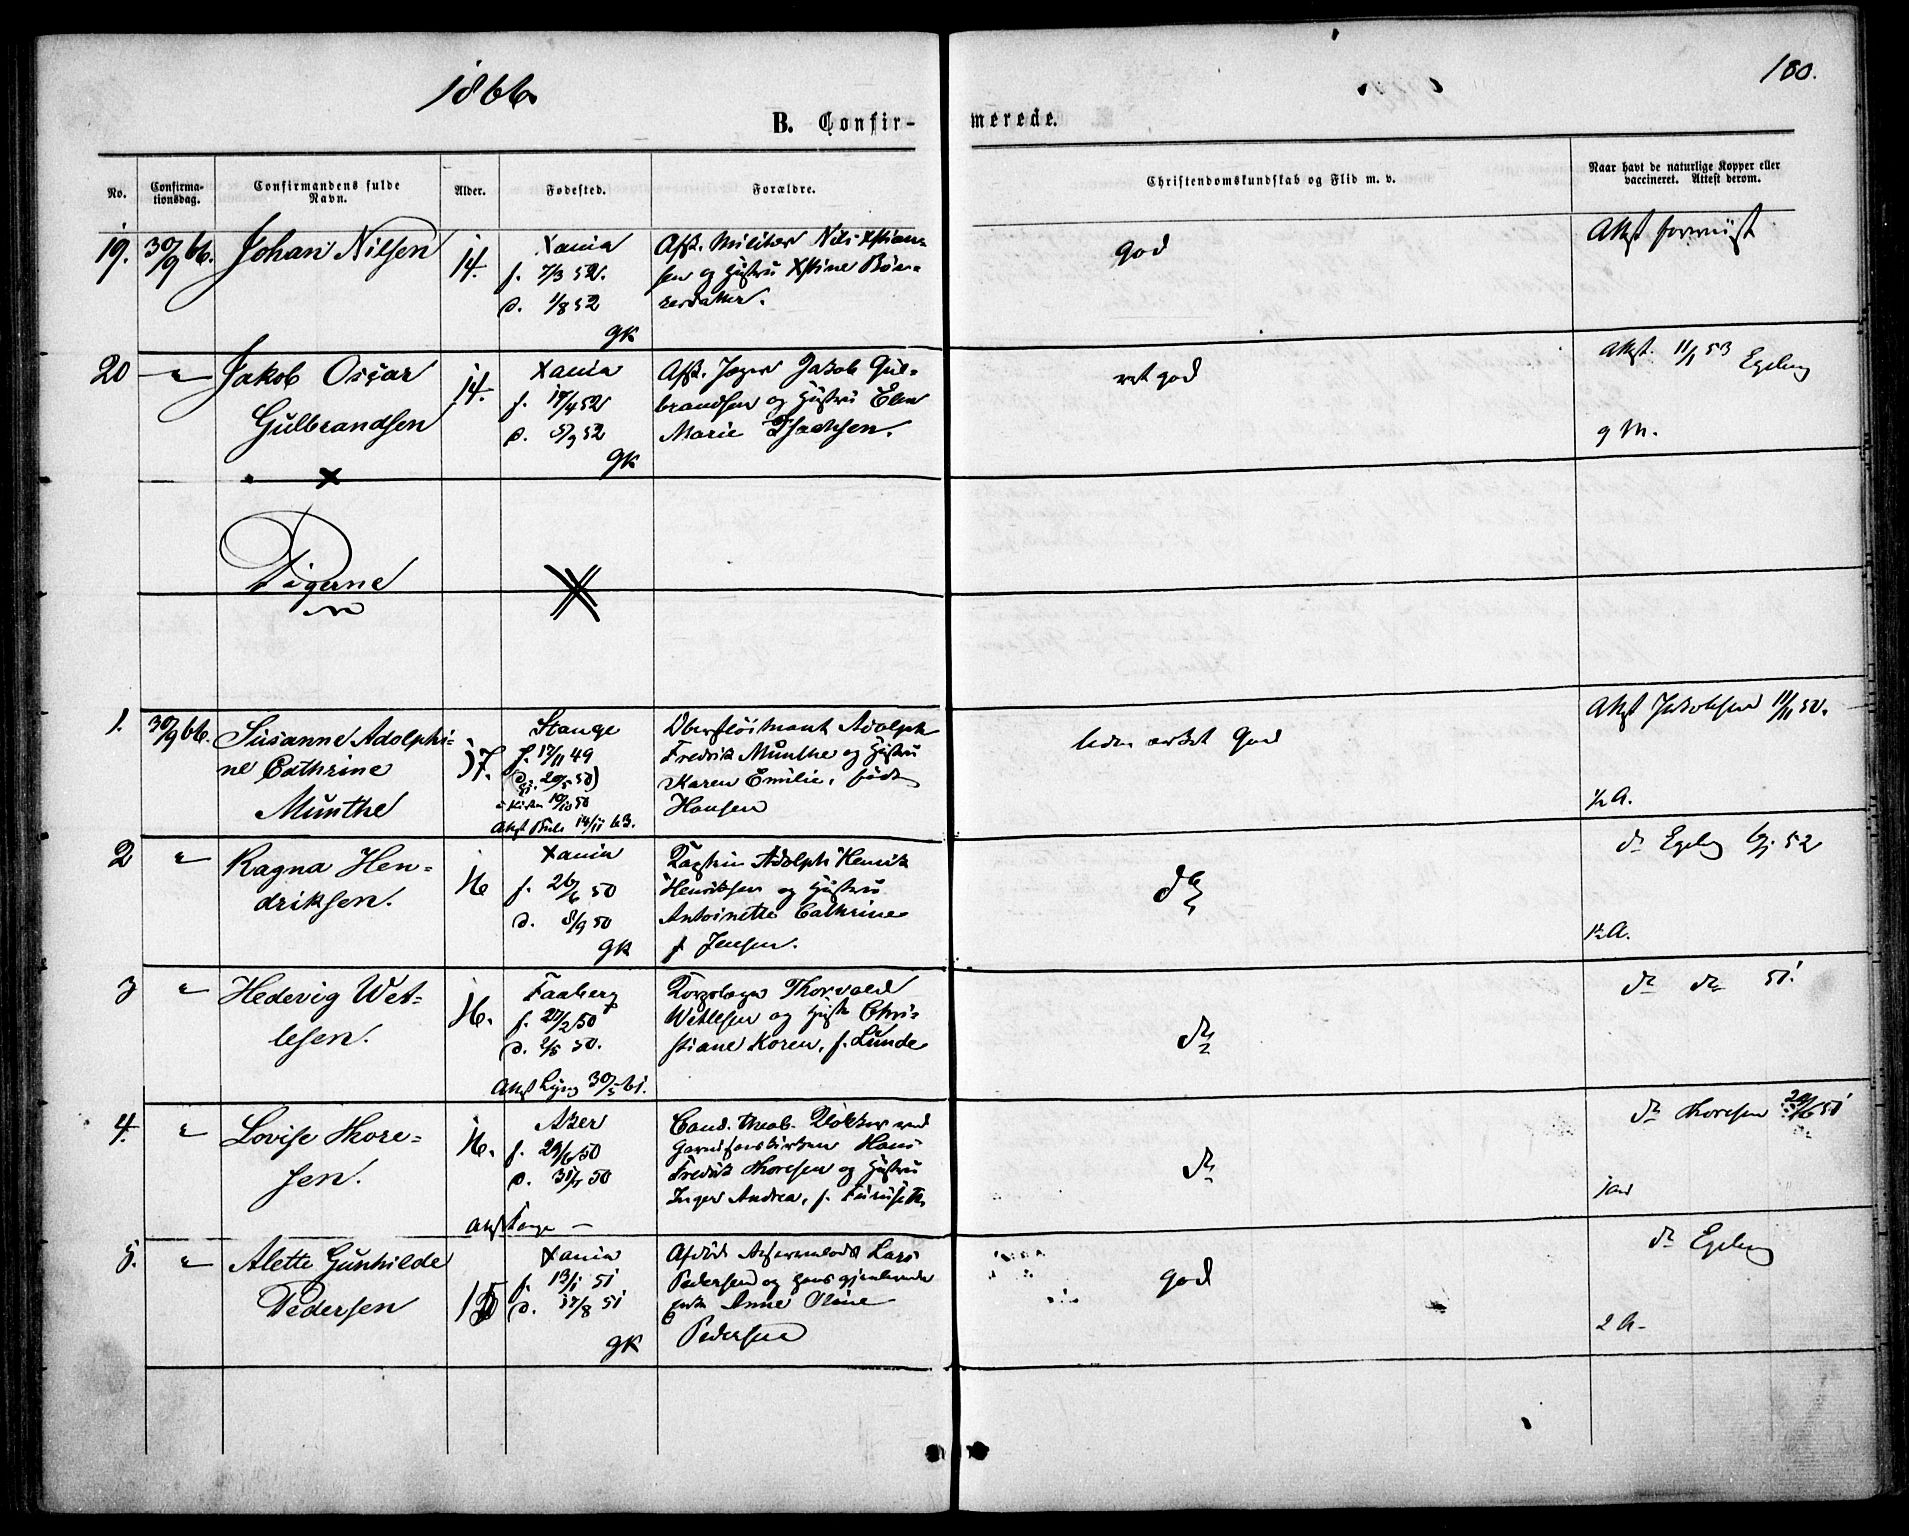 1866.
180.
B. Confir-
merede.
No.
Confirma-
tionsdag.
Confirmandens fulde
Navn.
Alder.
Fødested.
Forældre.
Christendomskundskab og Flid m. v.
Naar havt de naturlige Kopper eller
vaccineret. Attest derom.
19. 30/9 66. Johan Nilsen 14. Xania
f. 7/3 52.
d. 1/8 52
gk
Afsk. Militær Nils Xstian-
sen og Hustru Xstine
god
Attst
20 " Jakob Oscar
Gulbrandsen
14.
Xania
f. 17/4 52
d. 5/9 52
gk
Afsk. Jæger Jakob Gul-
brandsen og Hustru Elen
Marie Isachsen.
ret god
Attst. 11/1 53 Egeberg
g M.
Pigerne
1. 30/9 66. Susanne Adolphi-
ne Cathrine
Munthe
Stange
f. 12/11 49
14/11 63.
Oberstløitnant Adolph
Fredrik Munthe og Hustru
Karen Emilie, født
Hansen
god
Attst Jakobsen 11/11 50.
1/2 A.
2 " Ragna Hen-
driksen.
16
Xania
f. 26/6 50
d. 8/9 50
gk
Adolph Henrik
Henriksen og Hustru
Antoinette Cathrine
f. Jensen.
do
do Egeberg 52
3 " Hedevig Wet-
lesen.
16.
Faaberg
f. 27/2 50
d. 2/5 50.
Attst 30/5 61.
Korpslæge Thorvald
Wetlesen og Hustr Chri-
stiane Koren, f. Lunde
do
do do 51.
4. " Lovise Thore-
sen.
16.
Aker
f. 29/6 50
d. 50
Attst
Cand. theol. Klokker ved
Garnisonskirken Hans
Fredrik Thoresen og Hustru
Inger Andrea, f. Furuseth
do
do Thoresen 51
5. " Alette Gunhilde
Pedersen
15
Xania
f. 13/1 51
d. 17/8 51
gk
Afdøde Lars
Pedersen og hans gjenlevende
Enke Anne Oline
Pedersen
god
do Egeberg
2 A.